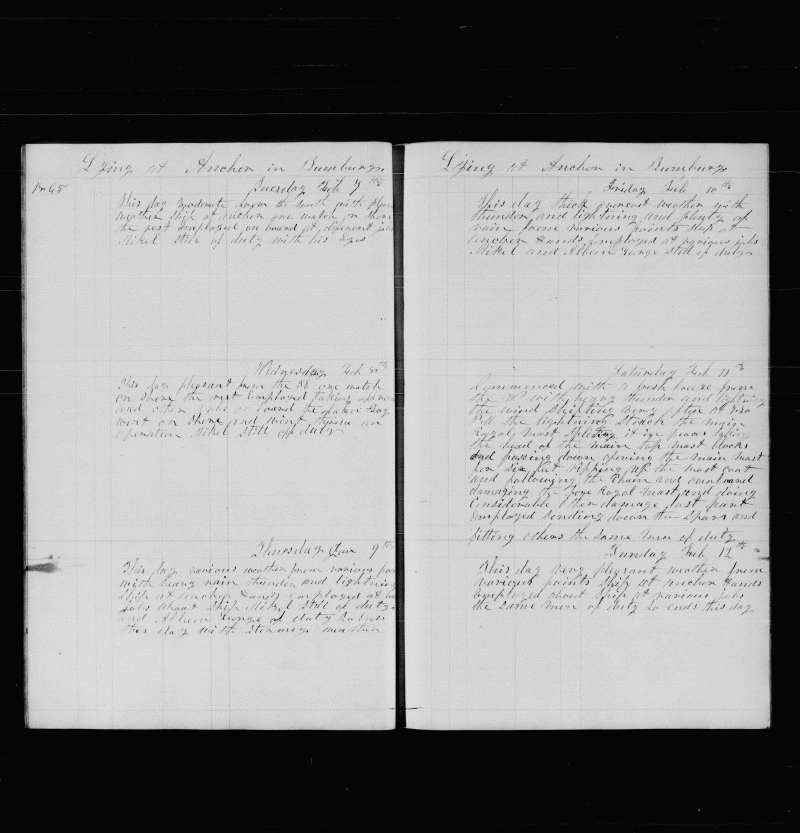 Lying at Anchor in Bumburgo
1865
Tuesday Feb 7th
This day moderate from the South with pleas
weather Ship at anchor one watch on Shore
the rest Employed on board at diferent jobs
Mikel Still of duty with his Eyes
Wednesday Feb 8th
This day plesant from the one watch
on Shore the rest Employed taking
and other Jobs on board
went on Shore and went under an
operation Mikel Still off duty
Thursday 9th
This day various weather from various
with heavy rain thunder and lightning
Ship at anchor Hands Employed at
Jobs about Ship Mikel Still of duty
and Albion George of duty So Ends
this day with Stormy weather
Lying at Anchor in Bumburgo
Friday Feb 10th
This day thick overcast weather with
thunder and lightning and plenty of
rain from various points Ship at
anchor Hands Employed at various jobs
Mikel and Albion George Still of duty
Saturday Feb 11th
Commenced with a fresh breeze from
the with heavy thunder and lightning
the wind Shifting
P.M the lightning Struck the main
Royal mast Spliting it in
the head of the main top mast
and passing down opening the main mast
for Six feet riping up the mast coat
and following the Chain and
damaging the fore Royal mast and doing
Considerable other damage last part
Employed Sending down the Spars and
fitting others the Same men of duty
Sunday Feb 12th
This day very plesant weather from
various points Ship at anchor Hands
Employed about Ship at various jobs
the Same men of duty So ends this day